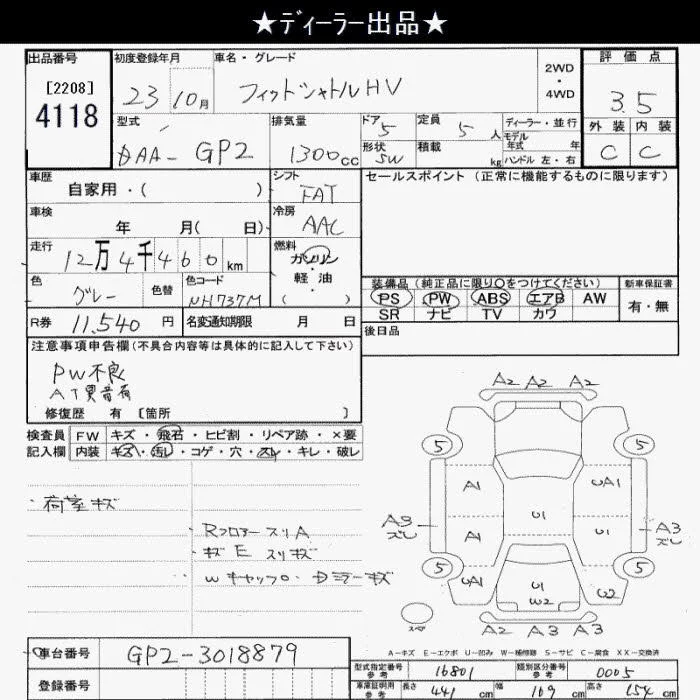 ★ディーラー出品★
出品番号 初度登録年月 車名・グレード 2WD・4WD 評価点
[2208]
4118
23 10月 フィットシャトルHV 3.5
型式 排気量 ドア 5 定員 5 人 ディーラー・並行 外装 内装
DAA-GP2 1300cc 形状 SW 積載 kg モデル年式 年 ハンドル 左・右 C C
車歴 自家用・( ) シフト FAT セールスポイント (正常に機能するものに限ります)
車検 年 月( 日) 冷房 AAC
走行 12万4千460km 燃料 ガソリン・軽油( )
色 グレー 色替 色コード NH737M
装備品 (純正品に限り○をつけてください) 新車保証書
PS PW ABS エアB AW 有・無
SR ナビ TV カワ
R券 11,540円 名変通知期限 月 日 後日品
注意事項申告欄(不具合内容等は具体的に記入して下さい)
PW不良
AT異音有
修復歴 有 [箇所 ]
検査員 FW キズ・飛石・ヒビ割・リペア跡・×要
記入欄 内装 キズ・汚レ・コゲ・穴・スレ・キレ・破レ
・荷室キズ
・RフロアースリA
・キズ E スリキズ
・Wキャップ・Dミラーキズ
A2 A2 A2
5 5
A1 UA1
A3 ズレ U1 U1 A3 ズレ
A1
5 5
UA1 U1 U2
W2
スペア
A2 A3 A3
A-キズ E-エクボ U-凹み W-補修跡 S-サビ C-腐食 XX-交換済
車台番号 GP2-3018879
登録番号
型式指定番号 参考 16801 類別区分番号 参考 0005
車庫証明用 参考 長さ 441 cm 幅 169 cm 高さ 154 cm